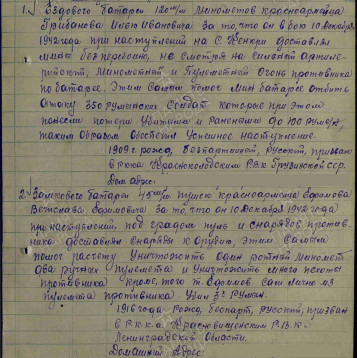 1. Ездового батареи 120 м/м минометов красноармейца
Грибанова Илью Ивановича за то, что он в бою 10 декабря
1942 года при наступлении на С. доставлял
мины бесперебойно, не смотря на сильный артиле-
рийский, минометный и пулеметный огонь противника
по батарее. Этим самым помог мин батарее отбить
атаку 350 румынских солдат которые при этом
понесли потери убитыми и ранеными до 100 румын,
таким образом обеспечил успешное наступление.
1909 г. рожд, беспартийный, русский, призван
в РККА Красноколодским РВК Грузинской ССР.
Дом адрес:
2. Замкового батареи 45 м/м пушек красноармейца Ефимова
Вячислава Ефимовича за то, что он 10 декабря 1942 года
при наступлении под градом пуль и снарядов против-
ника доставлял снаряды к орудию, этим самым
помог расчету уничтожить один ротный миномет
два ручных пулемета и уничтожить много пехоты
противника кроме, того т. Ефимов сам лично из
пулемета противника убил 3х румын.
1916 года рожд, беспарт, русский, призван
в Р.К.К.А. Р.В.К.
Ленинградской области.
Домашний адрес: